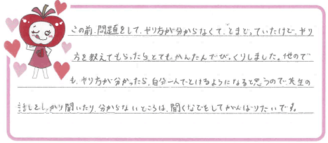 この前、問題をして、やり方が分からなくて、とまどっていたけど、やり
方を教えてもらったらとても、かんたんでびっくりしました。他ので
も、やり方が分かったら、自分一人でとけるようになると思うので先生の
話をしっかり聞いたり、分からないところは、聞くなどをしてがんばりたいです。